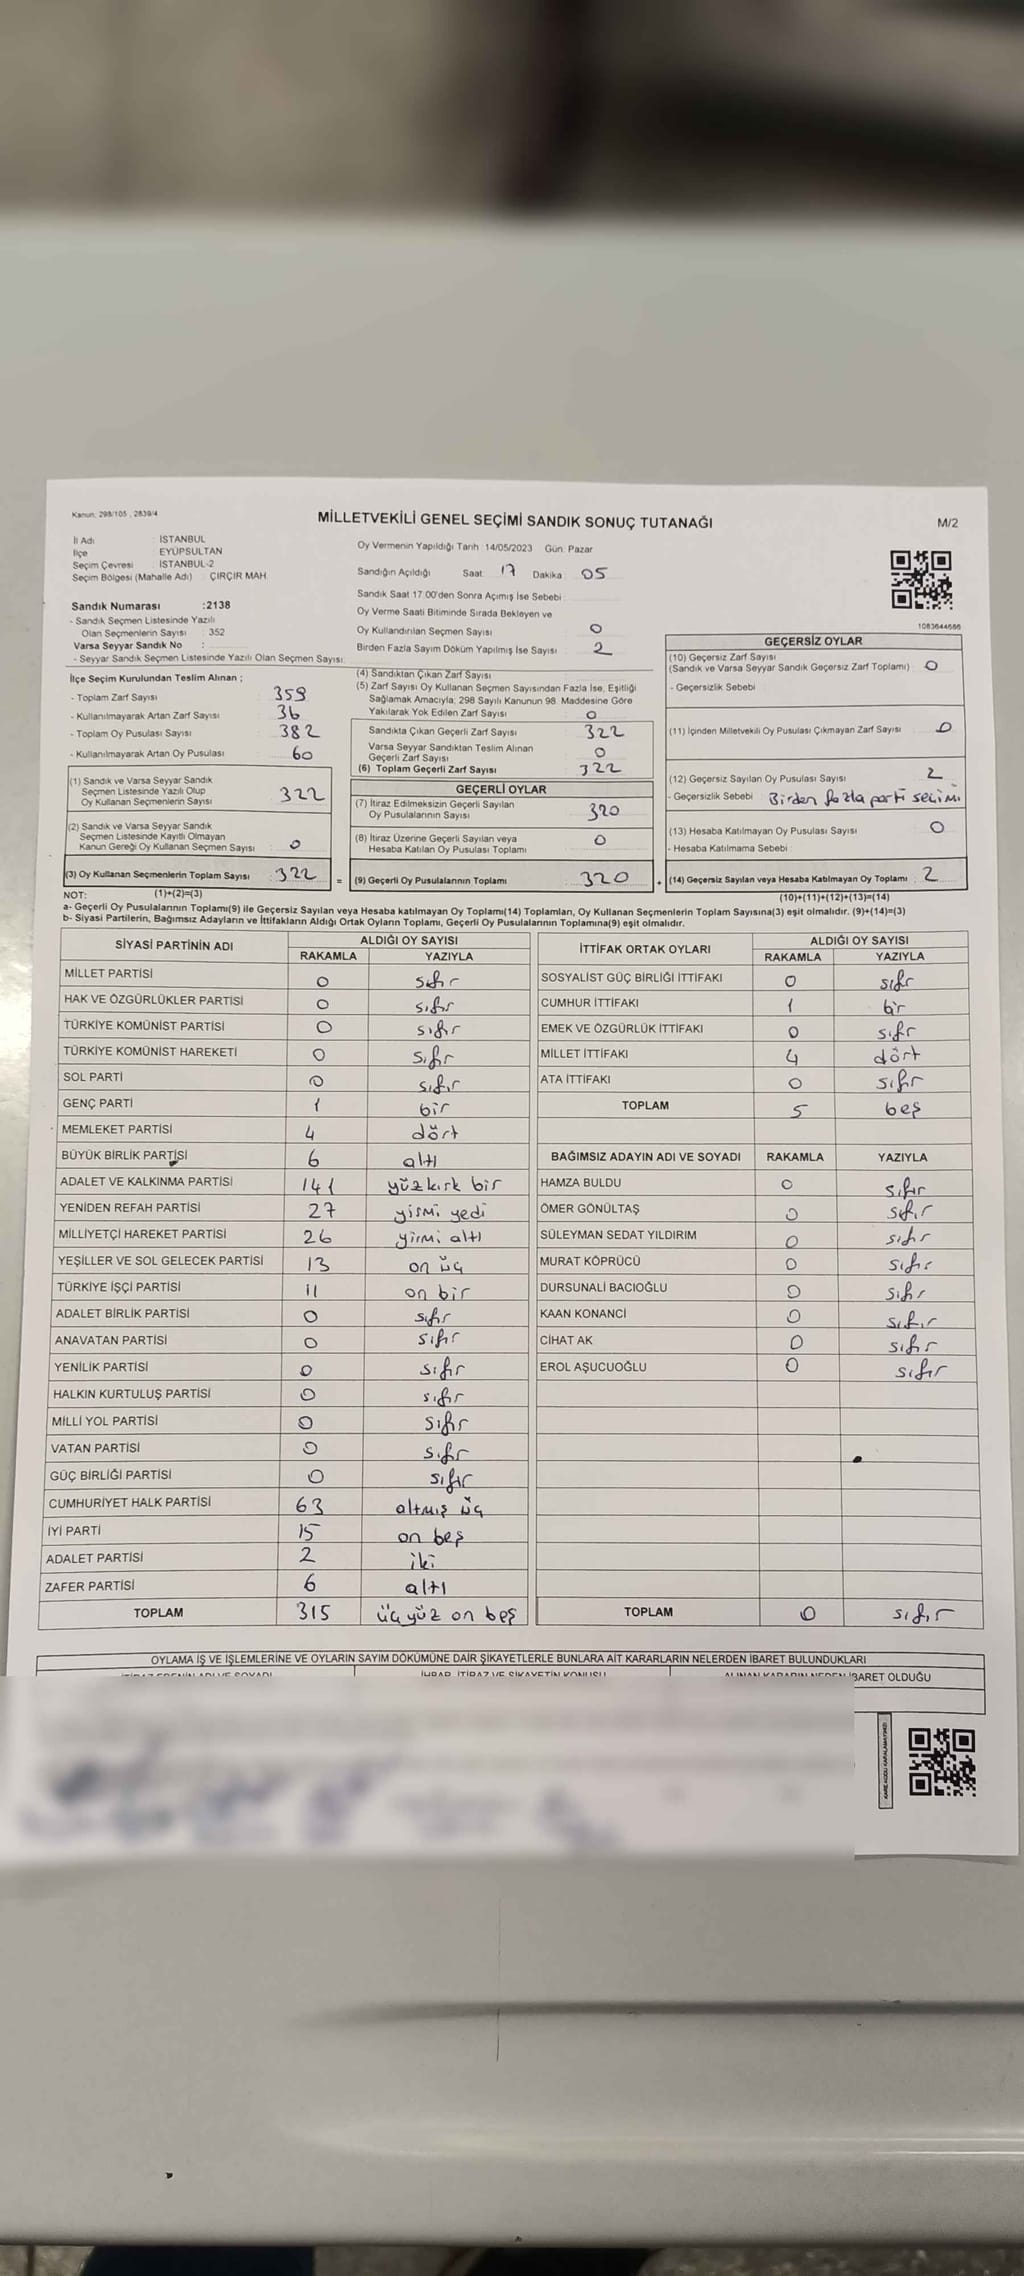 Kanun: 298/105 , 2839/4
MİLLETVEKİLİ GENEL SEÇİMİ SANDIK SONUÇ TUTANAĞI
M/2
İl Adı : İSTANBUL
İlçe : EYÜPSULTAN
Seçim Çevresi : İSTANBUL-2
Seçim Bölgesi (Mahalle Adı) : ÇIRÇIR MAH.
Sandık Numarası :2138
- Sandık Seçmen Listesinde Yazılı
Olan Seçmenlerin Sayısı : 352
Varsa Seyyar Sandık No :
- Seyyar Sandık Seçmen Listesinde Yazılı Olan Seçmen Sayısı:
Oy Vermenin Yapıldığı Tarih 14/05/2023 Gün: Pazar
Sandığın Açıldığı Saat: 17 Dakika: 05
Sandık Saat 17:00'den Sonra Açımış İse Sebebi :
Oy Verme Saati Bitiminde Sırada Bekleyen ve
Oy Kullandırılan Seçmen Sayısı : 0
Birden Fazla Sayım Döküm Yapılmış İse Sayısı : 2
1083644686
İlçe Seçim Kurulundan Teslim Alınan ;
- Toplam Zarf Sayısı : 359
- Kullanılmayarak Artan Zarf Sayısı : 36
- Toplam Oy Pusulası Sayısı : 382
- Kullanılmayarak Artan Oy Pusulası : 60
(1) Sandık ve Varsa Seyyar Sandık
Seçmen Listesinde Yazılı Olup
Oy Kullanan Seçmenlerin Sayısı : 322
(2) Sandık ve Varsa Seyyar Sandık
Seçmen Listesinde Kayıtlı Olmayan
Kanun Gereği Oy Kullanan Seçmen Sayısı : 0
(3) Oy Kullanan Seçmenlerin Toplam Sayısı : 322
(1)+(2)=(3)
(4) Sandıktan Çıkan Zarf Sayısı
(5) Zarf Sayısı Oy Kullanan Seçmen Sayısından Fazla İse, Eşitliği
Sağlamak Amacıyla; 298 Sayılı Kanunun 98. Maddesine Göre
Yakılarak Yok Edilen Zarf Sayısı : 0
Sandıkta Çıkan Geçerli Zarf Sayısı : 322
Varsa Seyyar Sandıktan Teslim Alınan
Geçerli Zarf Sayısı : 0
(6) Toplam Geçerli Zarf Sayısı : 322
GEÇERLİ OYLAR
(7) İtiraz Edilmeksizin Geçerli Sayılan
Oy Pusulalarının Sayısı : 320
(8) İtiraz Üzerine Geçerli Sayılan veya
Hesaba Katılan Oy Pusulası Toplamı : 0
= (9) Geçerli Oy Pusulalarının Toplamı : 320 +
GEÇERSİZ OYLAR
(10) Geçersiz Zarf Sayısı
(Sandık ve Varsa Seyyar Sandık Geçersiz Zarf Toplamı) : 0
- Geçersizlik Sebebi :
(11) İçinden Milletvekili Oy Pusulası Çıkmayan Zarf Sayısı : 0
(12) Geçersiz Sayılan Oy Pusulası Sayısı : 2
- Geçersizlik Sebebi : Birden fazla parti seçimi
(13) Hesaba Katılmayan Oy Pusulası Sayısı : 0
- Hesaba Katılmama Sebebi :
(14) Geçersiz Sayılan veya Hesaba Katılmayan Oy Toplamı : 2
(10)+(11)+(12)+(13)=(14)
NOT:
a- Geçerli Oy Pusulalarının Toplamı(9) ile Geçersiz Sayılan veya Hesaba katılmayan Oy Toplamı(14) Toplamları, Oy Kullanan Seçmenlerin Toplam Sayısına(3) eşit olmalıdır. (9)+(14)=(3)
b- Siyasi Partilerin, Bağımsız Adayların ve İttifakların Aldığı Ortak Oyların Toplamı, Geçerli Oy Pusulalarının Toplamına(9) eşit olmalıdır.
SİYASİ PARTİNİN ADI ALDIĞI OY SAYISI
RAKAMLA YAZIYLA
MİLLET PARTİSİ 0 sıfır
HAK VE ÖZGÜRLÜKLER PARTİSİ 0 sıfır
TÜRKİYE KOMÜNİST PARTİSİ 0 sıfır
TÜRKİYE KOMÜNİST HAREKETİ 0 sıfır
SOL PARTİ 0 sıfır
GENÇ PARTİ 1 bir
MEMLEKET PARTİSİ 4 dört
BÜYÜK BİRLİK PARTİSİ 6 altı
ADALET VE KALKINMA PARTİSİ 141 yüzkırk bir
YENİDEN REFAH PARTİSİ 27 yirmi yedi
MİLLİYETÇİ HAREKET PARTİSİ 26 yirmi altı
YEŞİLLER VE SOL GELECEK PARTİSİ 13 on üç
TÜRKİYE İŞÇİ PARTİSİ 11 on bir
ADALET BİRLİK PARTİSİ 0 sıfır
ANAVATAN PARTİSİ 0 sıfır
YENİLİK PARTİSİ 0 sıfır
HALKIN KURTULUŞ PARTİSİ 0 sıfır
MİLLİ YOL PARTİSİ 0 sıfır
VATAN PARTİSİ 0 sıfır
GÜÇ BİRLİĞİ PARTİSİ 0 sıfır
CUMHURİYET HALK PARTİSİ 63 altmış üç
İYİ PARTİ 15 on beş
ADALET PARTİSİ 2 iki
ZAFER PARTİSİ 6 altı
TOPLAM 315 üç yüz on beş
İTTİFAK ORTAK OYLARI ALDIĞI OY SAYISI
RAKAMLA YAZIYLA
SOSYALİST GÜÇ BİRLİĞİ İTTİFAKI 0 sıfır
CUMHUR İTTİFAKI 1 bir
EMEK VE ÖZGÜRLÜK İTTİFAKI 0 sıfır
MİLLET İTTİFAKI 4 dört
ATA İTTİFAKI 0 sıfır
TOPLAM 5 beş
BAĞIMSIZ ADAYIN ADI VE SOYADI RAKAMLA YAZIYLA
HAMZA BULDU 0 sıfır
ÖMER GÖNÜLTAŞ 0 sıfır
SÜLEYMAN SEDAT YILDIRIM 0 sıfır
MURAT KÖPRÜCÜ 0 sıfır
DURSUNALİ BACIOĞLU 0 sıfır
KAAN KONANCİ 0 sıfır
CİHAT AK 0 sıfır
EROL AŞUCUOĞLU 0 sıfır
TOPLAM 0 sıfır
OYLAMA İŞ VE İŞLEMLERİNE VE OYLARIN SAYIM DÖKÜMÜNE DAİR ŞİKAYETLERLE BUNLARA AİT KARARLARIN NELERDEN İBARET BULUNDUKLARI
İTİRAZ EDENİN ADI VE SOYADI İHBAR, İTİRAZ VE ŞİKAYETİN KONUSU ALINAN KARARIN NEDEN İBARET OLDUĞU
KAREKODU KARALAMAYINIZ!